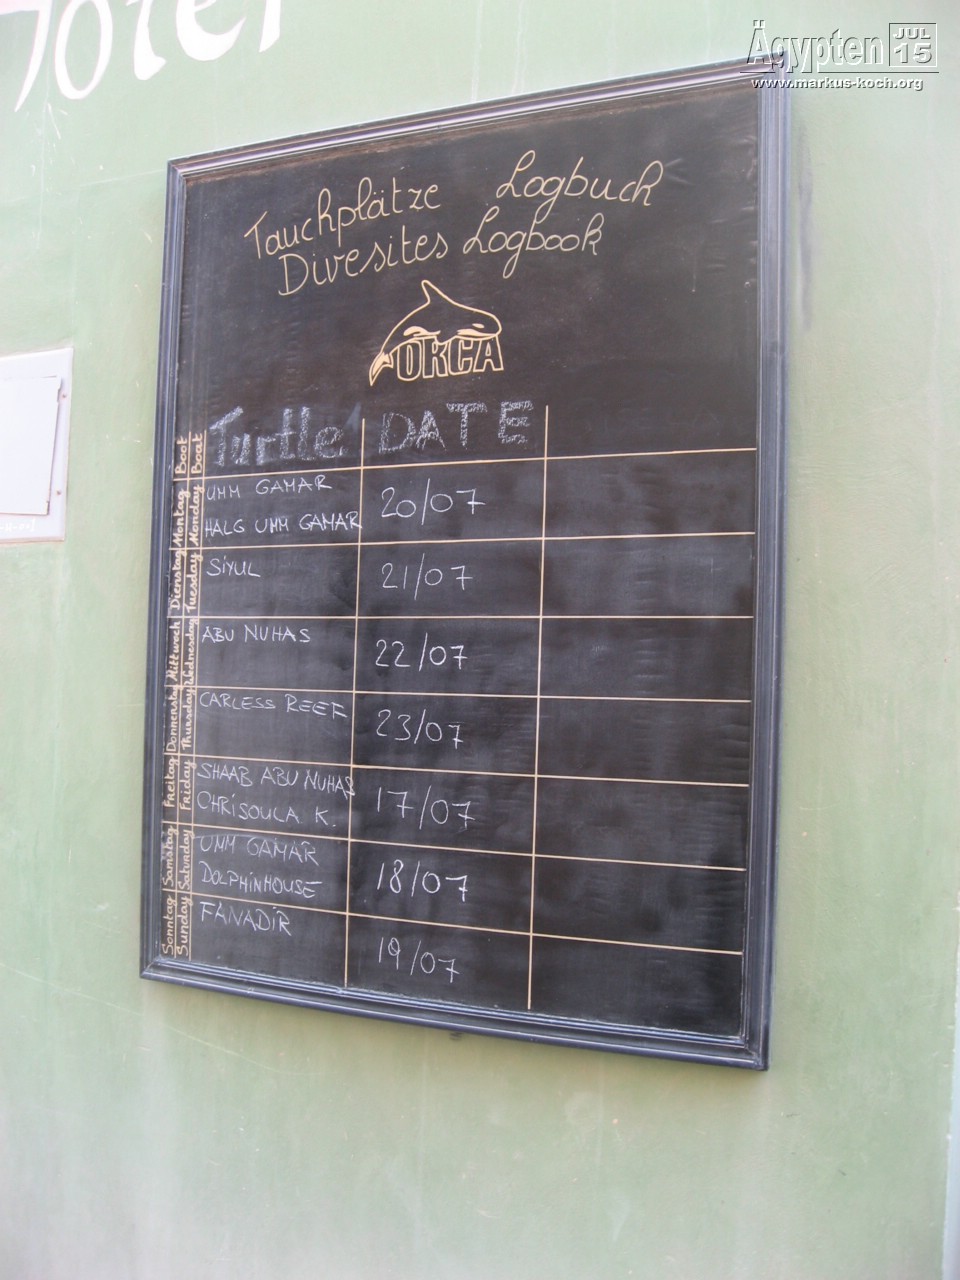 Ägypten JUL 15
www.markus-koch.org
Hotel
Tauchplätze Logbuch
Divesites Logbook
ORCA
Boot Boat Turtle DATE
Montag Monday UMM GAMAR
HALG UMM GAMAR 20/07
Dienstag Tuesday SiYUL 21/07
Mittwoch Wednesday ABU NUHAS 22/07
Donnerstag Thursday CARLESS REEF 23/07
Freitag Friday SHAAB ABU NUHAS
CHRiSOULA K. 17/07
Samstag Saturday UMM GAMAR
DOLPHINHOUSE 18/07
Sonntag Sunday FANADiR 19/07